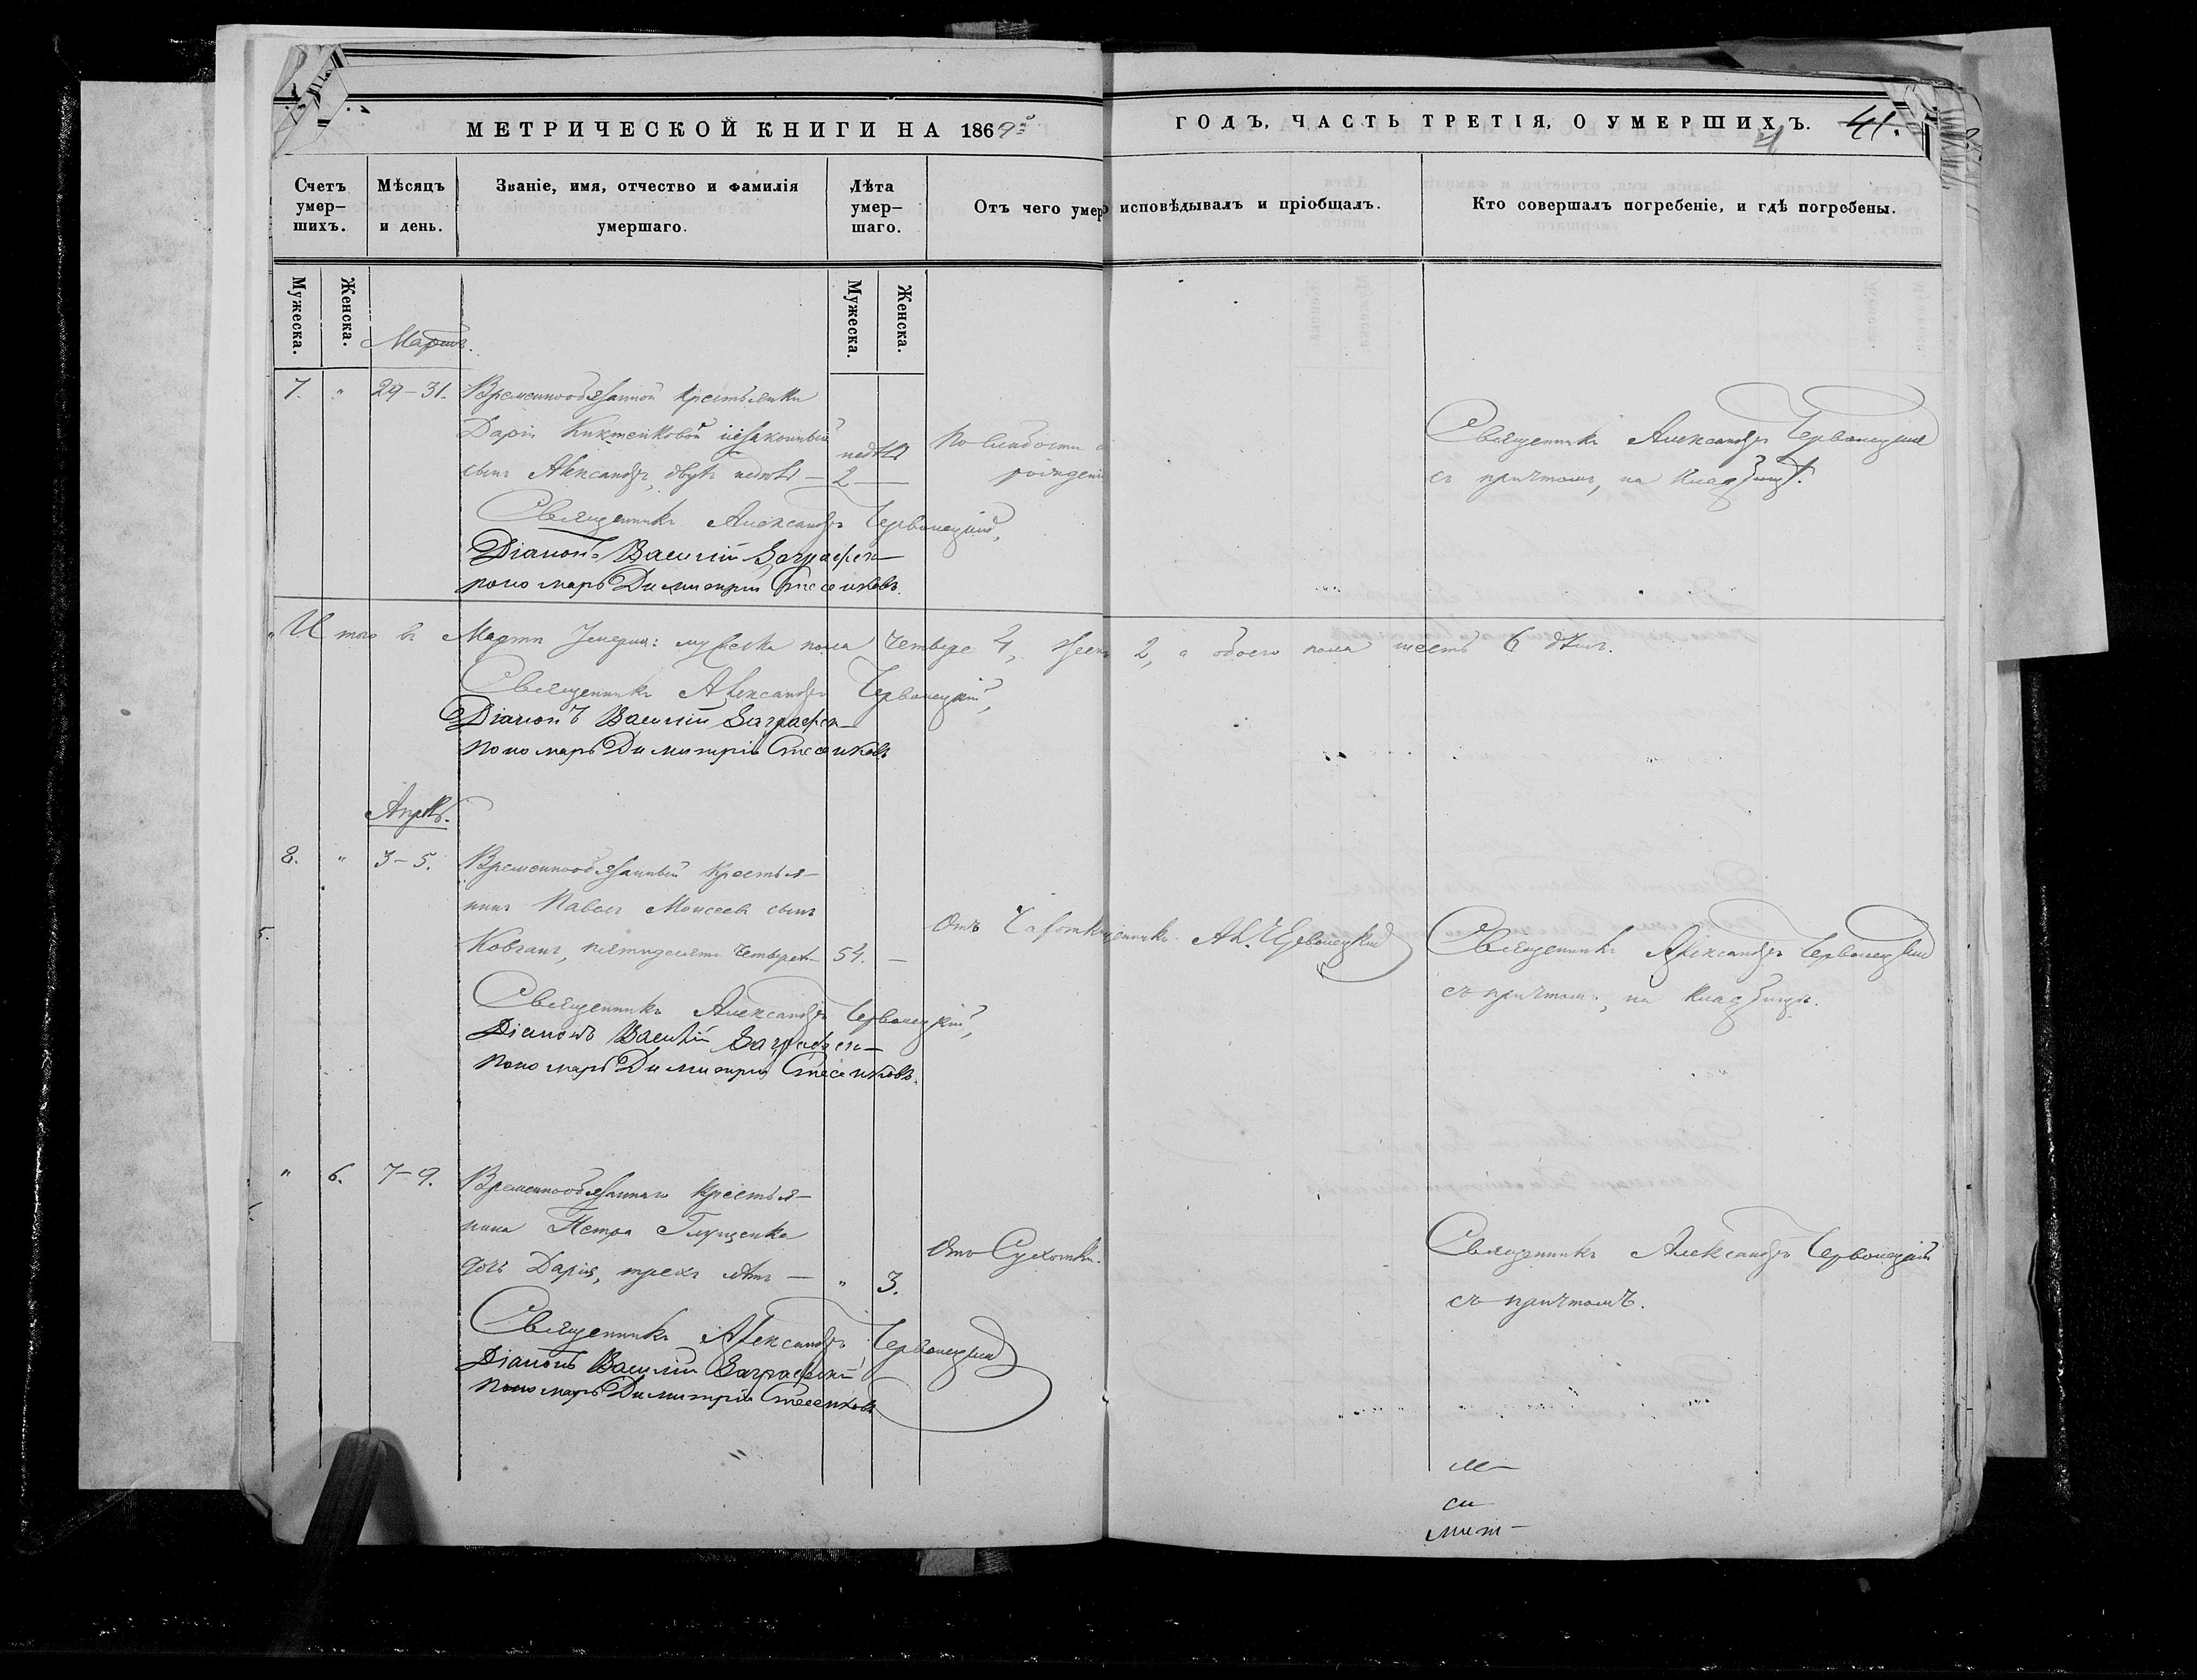 МЕТРИЧЕСКОЙ КНИГИ НА 1869й
ГОДЪ, ЧАСТЬ ТРЕТІЯ, О УМЕРШИХЪ. 41.
Счетъ умер-шихъ.
Мѣсяцъ и день.
Званіе, имя, отчество и фамилія умершаго.
Лѣта умер-шаго.
Отъ чего умер
исповѣдывалъ и пріобщалъ.
Кто совершалъ погребеніе, и гдѣ погребены.
Мужеска.
Женска.
Мужеска.
Женска.
Мартъ.
7. " 29-31. Временнообязанной крестьянки
Даріи незаконный
сынъ Александръ, двухъ недѣль — недѣль 2 —
По слабости рожденія
Священникъ Александръ Червонецкій
съ причтомъ, на кладбищѣ.
Священникъ Александръ Червонецкій,
Діаконъ Василій
пономарь Димитрій
Итого въ Мартѣ умерло: мужеска пола четыре 4, женск 2, а обоего пола шесть 6 душъ.
Священникъ Александръ Червонецкій,
Діаконъ Василій
пономарь Димитрій
Апрѣль.
8. " 3-5. Временнообязанный крестья-
нинъ Павелъ Моисеевъ сынъ
Ковганъ, пятидесяти четырехъ 54. —
Отъ Чахотки
Ал. Червонецкій
Священникъ Александръ Червонецкій
съ причтомъ, на кладбищѣ.
Священникъ Александръ Червонецкій,
Діаконъ Василій
пономарь Димитрій
" 6. 7-9. Временнообязаннаго крестья-
нина Петра Глущенка
дочь Дарія, трехъ лѣтъ — " 3.
Отъ Сухотки.
Священникъ Александръ Червонецкій
съ причтомъ.
Священникъ Александръ Червонецкій
Діаконъ Василій
пономарь Димитрій